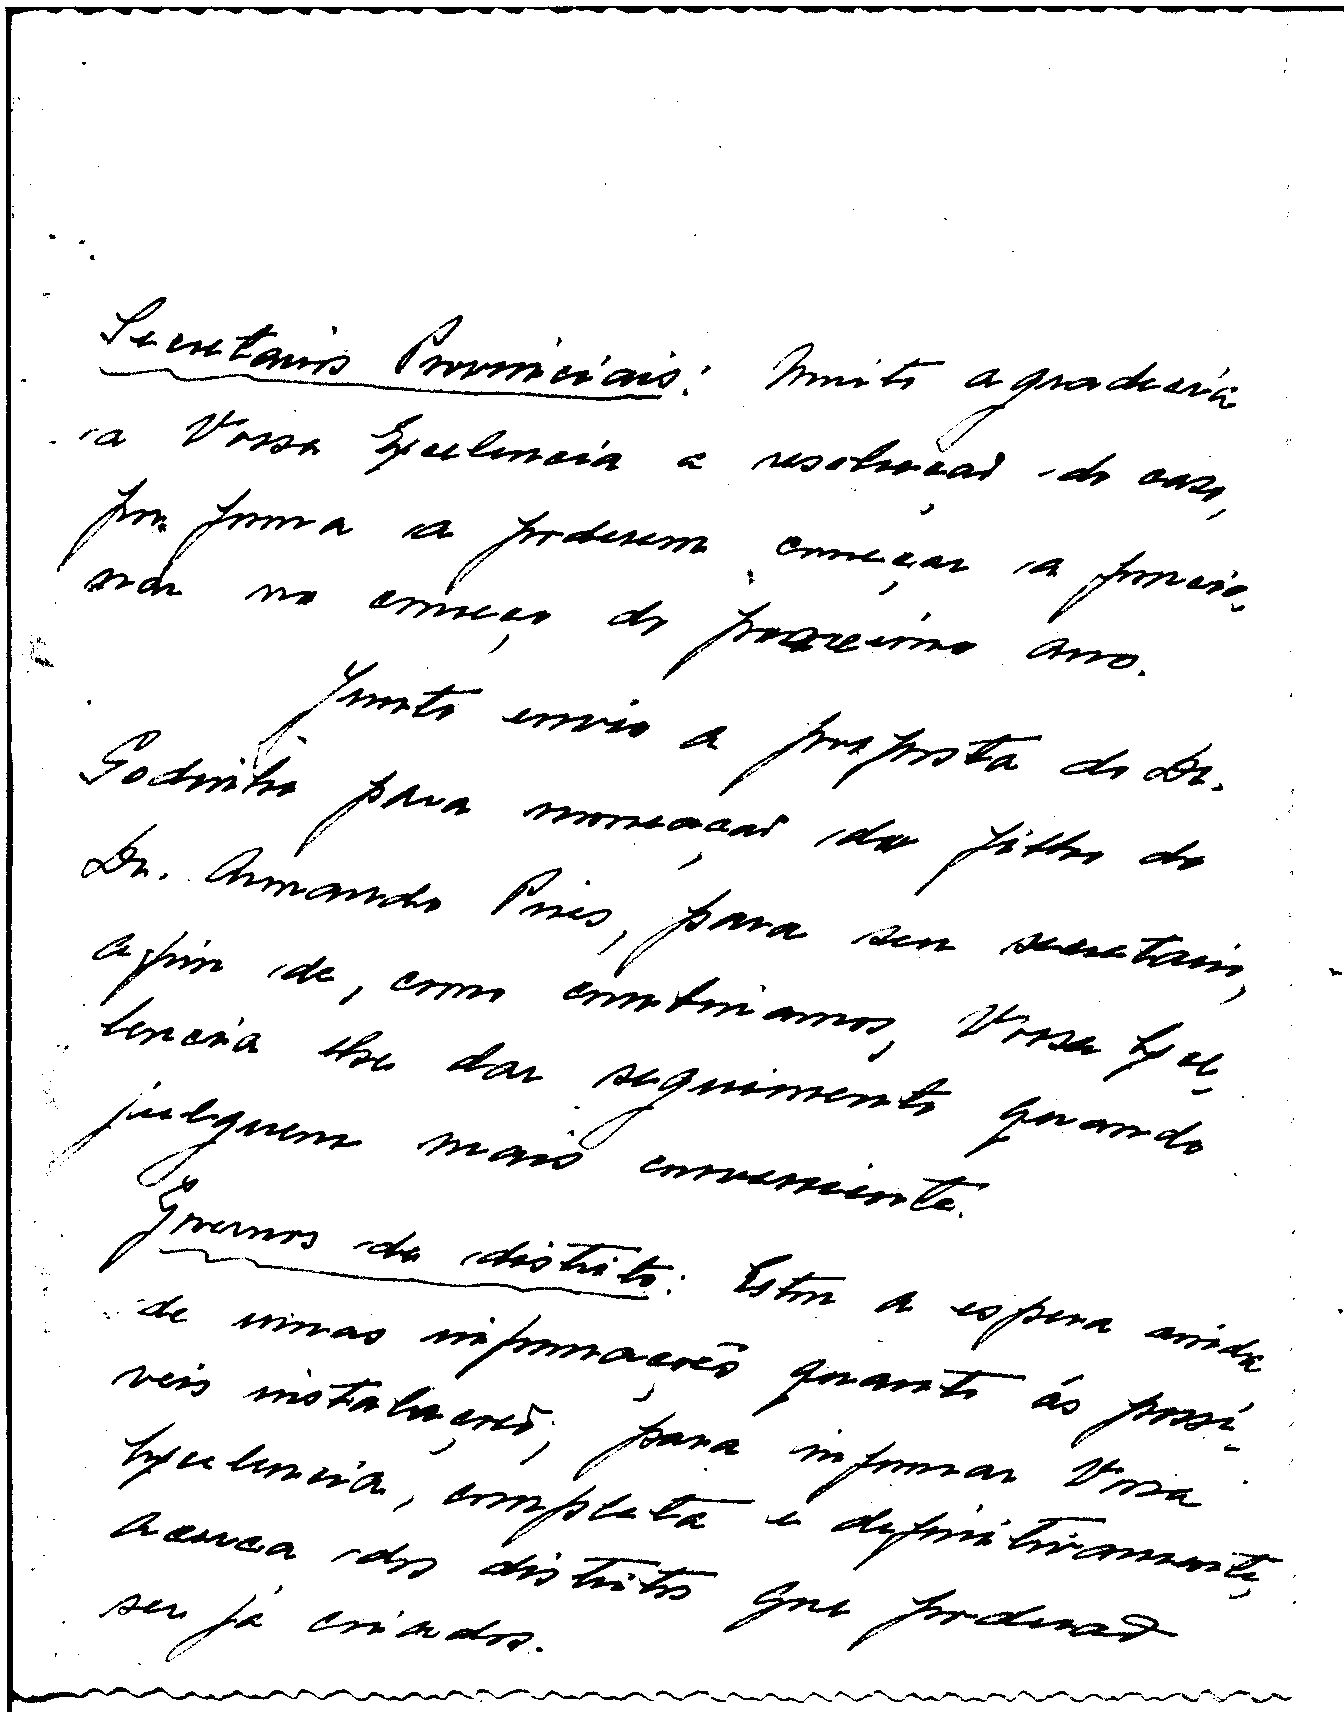 Secretários Provinciais: Muito agradeceria
a Vossa Excelencia a resolução do caso,
por forma a poderem começar a funcio-
nar no começo do proximo ano.
Junto envio a proposta do Dr.
Godinho para nomeação do filho do
Dr. Armando Pires, para seu secretario,
afim de, como combinamos, Vossa Exce-
lencia lhe dar seguimento quando
julguem mais conveniente.
Governos de distrito: Estou a espera ainda
de umas informações quanto ás possi-
veis instalações, para informar Vossa
Excelencia, completa e definitivamente,
acerca dos distritos que poderão
ser já criados.